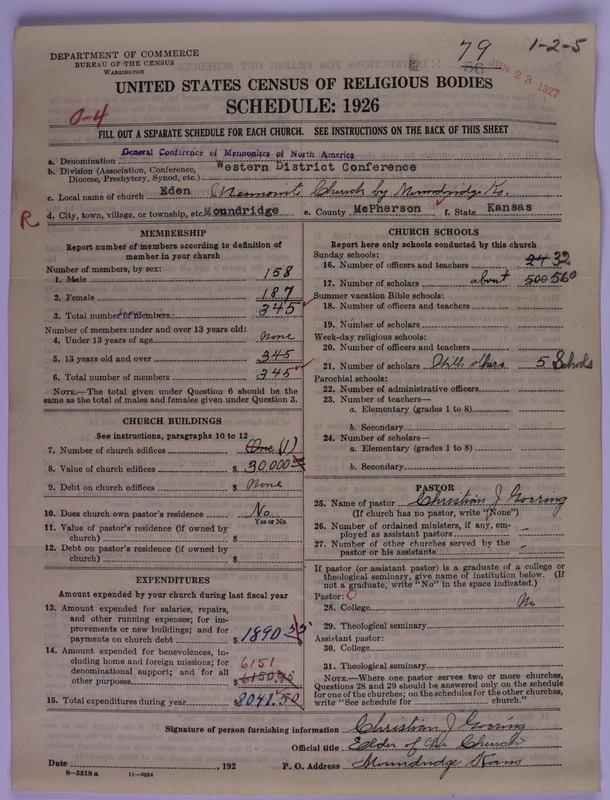 DEPARTMENT OF COMMERCE
BUREAU OF THE CENSUS
WASHINGTON
79
1-2-5
56
JUN 23 1927
UNITED STATES CENSUS OF RELIGIOUS BODIES
SCHEDULE: 1926
0-4
FILL OUT A SEPARATE SCHEDULE FOR EACH CHURCH. SEE INSTRUCTIONS ON THE BACK OF THIS SHEET
a. Denomination General Conference of Mennonites of North America
b. Division (Association, Conference, Diocese, Presbytery, Synod, etc.) Western District Conference
c. Local name of church Eden Mennonite Church by Moundridge Ks.
R
d. City, town, village, or township, etc. Moundridge e. County McPherson f. State Kansas
MEMBERSHIP
Report number of members according to definition of
member in your church
Number of members, by sex:
1. Male 158
2. Female 187
3. Total number of members 345
Number of members under and over 13 years old:
4. Under 13 years of age None
5. 13 years old and over 345
6. Total number of members 345
NOTE.—The total given under Question 6 should be the
same as the total of males and females given under Question 3.
CHURCH BUILDINGS
See instructions, paragraphs 10 to 12
7. Number of church edifices One (1)
8. Value of church edifices $ 30,000 00
9. Debt on church edifices $ None
10. Does church own pastor's residence? No
Yes or No
11. Value of pastor's residence (if owned by
church) $
12. Debt on pastor's residence (if owned by
church) $
EXPENDITURES
Amount expended by your church during last fiscal year
13. Amount expended for salaries, repairs,
and other running expenses; for im-
provements or new buildings; and for
payments on church debt $ 1890 55
14. Amount expended for benevolences, in-
cluding home and foreign missions; for
denominational support; and for all
other purposes $ 6150.95
6151
15. Total expenditures during year $ 8041.50
CHURCH SCHOOLS
Report here only schools conducted by this church
Sunday schools:
16. Number of officers and teachers 24 32
17. Number of scholars about 500 560
Summer vacation Bible schools:
18. Number of officers and teachers
19. Number of scholars
Week-day religious schools:
20. Number of officers and teachers
21. Number of scholars With others 5 Schools
Parochial schools:
22. Number of administrative officers
23. Number of teachers—
a. Elementary (grades 1 to 8)
b. Secondary
24. Number of scholars—
a. Elementary (grades 1 to 8)
b. Secondary
PASTOR
25. Name of pastor Christian J Goering
(If church has no pastor, write "None")
26. Number of ordained ministers, if any, em-
ployed as assistant pastors –
27. Number of other churches served by the
pastor or his assistants –
If pastor (or assistant pastor) is a graduate of a college or
theological seminary, give name of institution below. (If
not a graduate, write "No" in the space indicated.)
Pastor: 0
28. College No
29. Theological seminary
Assistant pastor:
30. College
31. Theological seminary
NOTE.—Where one pastor serves two or more churches,
Questions 28 and 29 should be answered only on the schedule
for one of the churches; on the schedules for the other churches,
write "See schedule for church."
Signature of person furnishing information Christian J Goering
Official title Elder of the Church
Date , 192 P. O. Address Moundridge Kans
8—5518 a 11—9654